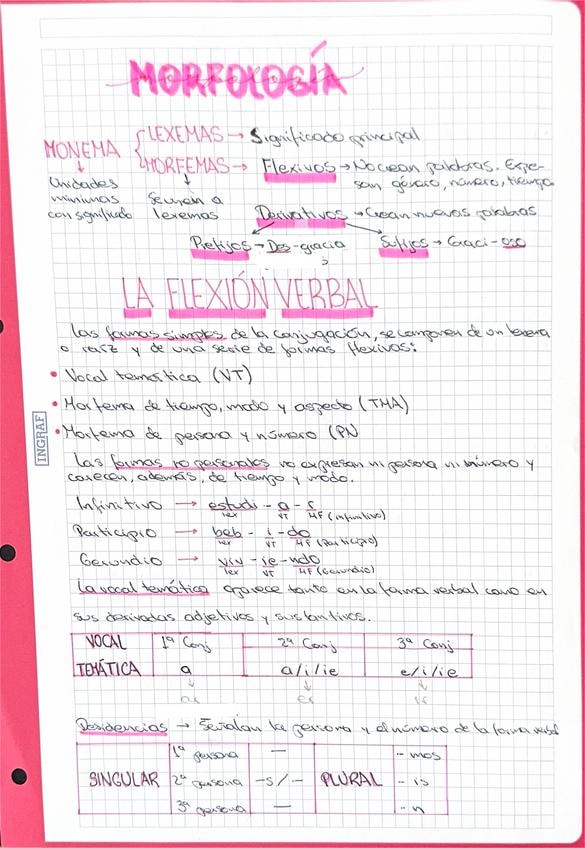 MORFOLOGÍA
MONEMA { LEXEMAS → Significado principal
MORFEMAS → Flexivos → No crean palabras. Expre-
san género, número, tiempo
↓
Unidades
mínimas
con significado
↓
Se unen a
lexemas
Derivativos → Crean nuevas palabras
Prefijos → Des-gracia
Sufijos → Graci-oso
LA FLEXIÓN VERBAL
Las formas simples de la conjugación, se componen de un lexema
o raíz y de una serie de formas flexivos:
• Vocal temática (VT)
• Morfema de tiempo, modo y aspecto (TMA)
• Morfema de persona y número (PN
Las formas no personales no expresan ni persona ni número y
carecen, además, de tiempo y modo.
Infinitivo → estudi - a - r
lex VT MF (infinitivo)
Participio → beb - i - do
lex VT MF (Participio)
Gerundio → viv - ie - ndo
lex VT MF (Gerundio)
La vocal temática aparece tanto en la forma verbal como en
sus derivados adjetivos y sustantivos.
VOCAL 1ª Conj 2ª Conj 3ª Conj
TEMÁTICA a a/i/ie e/i/ie
↓ ↓ ↓
ar er ir
Desidencias → Señalan la persona y el número de la forma verbal
1ª persona — - mos
SINGULAR 2ª persona -s/- PLURAL - is
3ª persona — - n
INGRAF